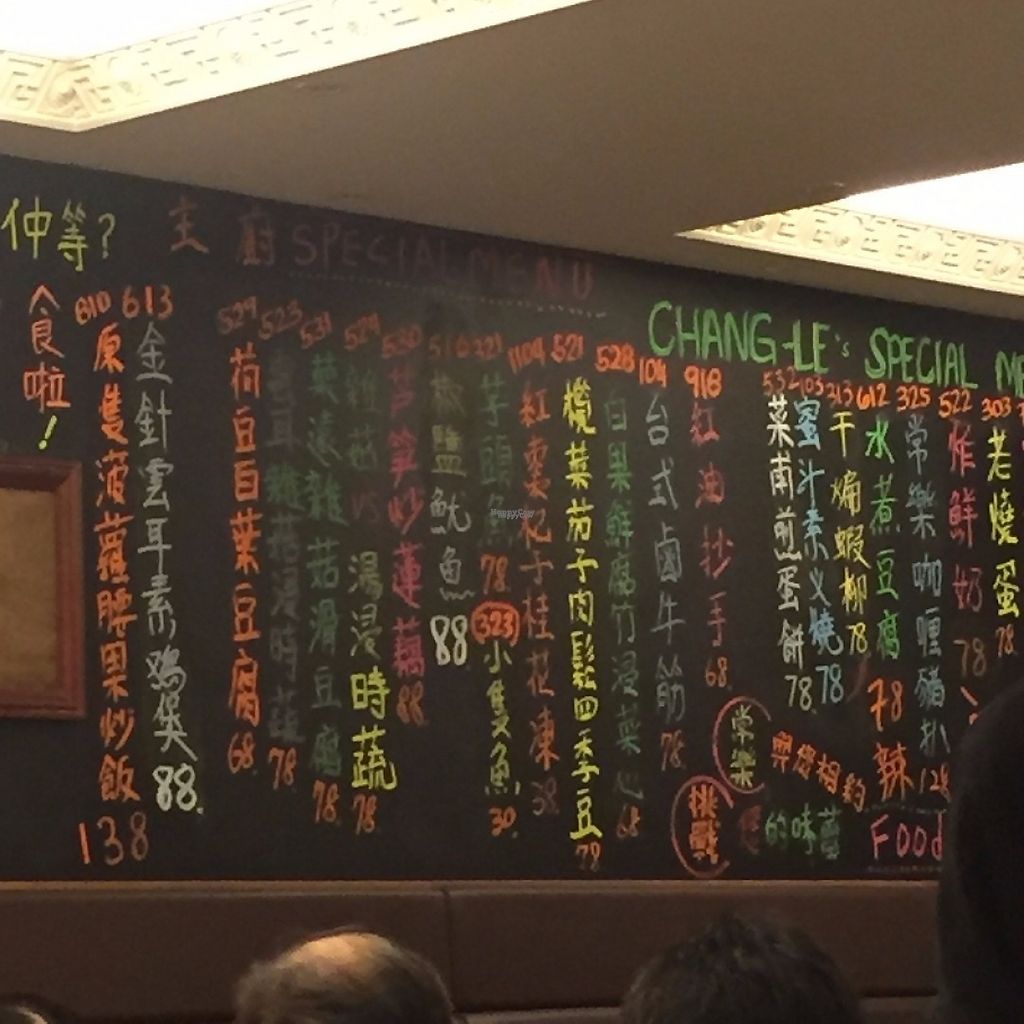 仲等?
食啦!
主廚 SPECIAL MENU
CHANG-LE's SPECIAL
610 原隻菠蘿腰果炒飯 138
613 金針雲耳素鷄煲 88.
529 荷豆百葉豆腐 68.
523 雲耳雜菇浸時蔬 78
531 莫遠雜菇滑豆腐 78.
524 雜菇 VS 湯浸時蔬 78.
530 芦笋炒蓮藕 88
516 椒鹽魷魚 88
321 芋頭魚 78.
323 小隻魚 30.
1104 紅棗杞子桂花凍 38
521 欖菜茄子肉鬆四季豆 78
528 白果鮮腐竹浸菜心 68
104 台式鹵牛筋 78.
918 紅油抄手 68.
532 菜甫煎蛋餅 78.
103 蜜汁素义燒 78
313 干煸蝦柳 78
612 水煮豆腐 78 辣
325 常樂咖喱豬扒 128
522 炸鮮奶 78
303 老燒蛋 78.
常樂
與您相約
挑戰
的味蕾
Food
HappyCow